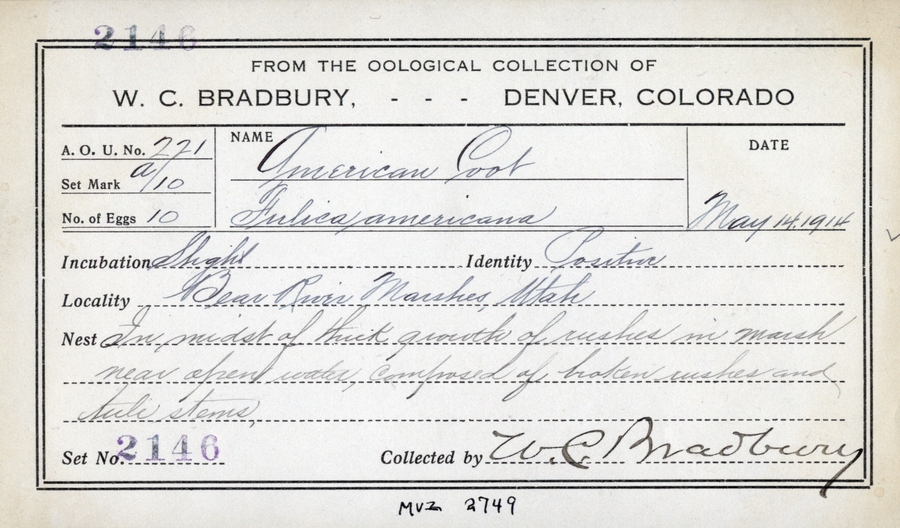 2146
FROM THE OOLOGICAL COLLECTION OF
W. C. BRADBURY, - - - DENVER, COLORADO
A. O. U. No. 221
NAME American Coot
DATE
Set Mark a/10
No. of Eggs 10
Fulica americana
May 14. 1914
Incubation Slight Identity Positive
Locality Bear River Marshes, Utah
Nest In midst of thick growth of rushes in marsh
near open water, composed of broken rushes and
tule stems,
Set No. 2146 Collected by W. C. Bradbury
MVZ 2749